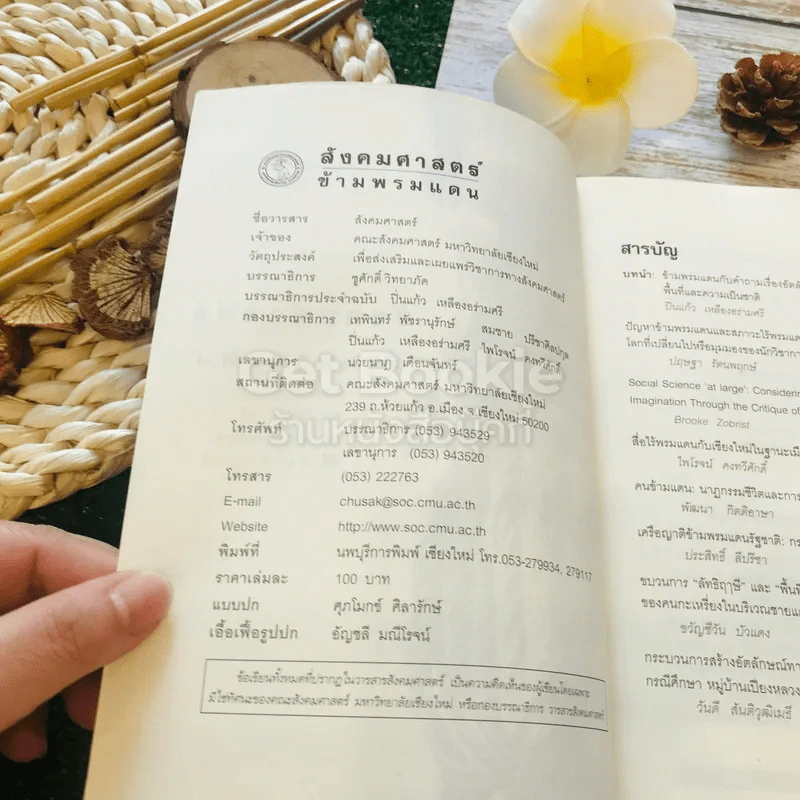 สังคมศาสตร์
ข้ามพรมแดน
ชื่อวารสาร สังคมศาสตร์
เจ้าของ คณะสังคมศาสตร์ มหาวิทยาลัยเชียงใหม่
วัตถุประสงค์ เพื่อส่งเสริมและเผยแพร่วิชาการทางสังคมศาสตร์
บรรณาธิการ ชูศักดิ์ วิทยาภัค
บรรณาธิการประจำฉบับ ปิ่นแก้ว เหลืองอร่ามศรี
กองบรรณาธิการ เทพินทร์ พัชรานุรักษ์ สมชาย ปรีชาศิลปกุล
ปิ่นแก้ว เหลืองอร่ามศรี ไพโรจน์ คงทวีศักดิ์
เลขานุการ นวยนาฏ เตือนจันทร์
สถานที่ติดต่อ คณะสังคมศาสตร์ มหาวิทยาลัยเชียงใหม่
239 ถ.ห้วยแก้ว อ.เมือง จ.เชียงใหม่ 50200
โทรศัพท์ บรรณาธิการ (053) 943529
เลขานุการ (053) 943520
โทรสาร (053) 222763
E-mail chusak@soc.cmu.ac.th
Website http://www.soc.cmu.ac.th
พิมพ์ที่ นพบุรีการพิมพ์ เชียงใหม่ โทร.053-279934, 279117
ราคาเล่มละ 100 บาท
แบบปก ศุภโมกข์ ศิลารักษ์
เอื้อเฟื้อรูปปก อัญชลี มณีโรจน์
ข้อเขียนทั้งหมดที่ปรากฏในวารสารสังคมศาสตร์ เป็นความคิดเห็นของผู้เขียนโดยเฉพาะ
มิใช่ทัศนะของคณะสังคมศาสตร์ มหาวิทยาลัยเชียงใหม่ หรือกองบรรณาธิการ วารสารสังคมศาสตร์
Get Bookie
ร้านหนังสือบุ๊คกี้
สารบัญ
บทนำ: ข้ามพรมแดนกับคำถามเรื่องอัตลั
พื้นที่และความเป็นชาติ
ปิ่นแก้ว เหลืองอร่ามศรี
ปัญหาข้ามพรมแดนและสภาวะไร้พรมแด
โลกที่เปลี่ยนไปหรือมุมมองของนักวิชากา
ปฤษฐา รัตนพฤกษ์
Social Science 'at large': Considerin
Imagination Through the Critique of
Brooke Zobrist
สื่อไร้พรมแดนกับเชียงใหม่ในฐานะเมื
ไพโรจน์ คงทวีศักดิ์
คนข้ามแดน: นาฏกรรมชีวิตและการ
พัฒนา กิติอาษา
เครือญาติข้ามพรมแดนรัฐชาติ: กร
ประสิทธิ์ ลีปรีชา
ขบวนการ "ลัทธิฤาษี" และ "พื้นที่
ของคนกะเหรี่ยงในบริเวณชายแ
ขวัญชีวัน บัวแดง
กระบวนการสร้างอัตลักษณ์ทา
กรณีศึกษา หมู่บ้านเปียงหลวง
วันดี สันติวุฒิเมธี